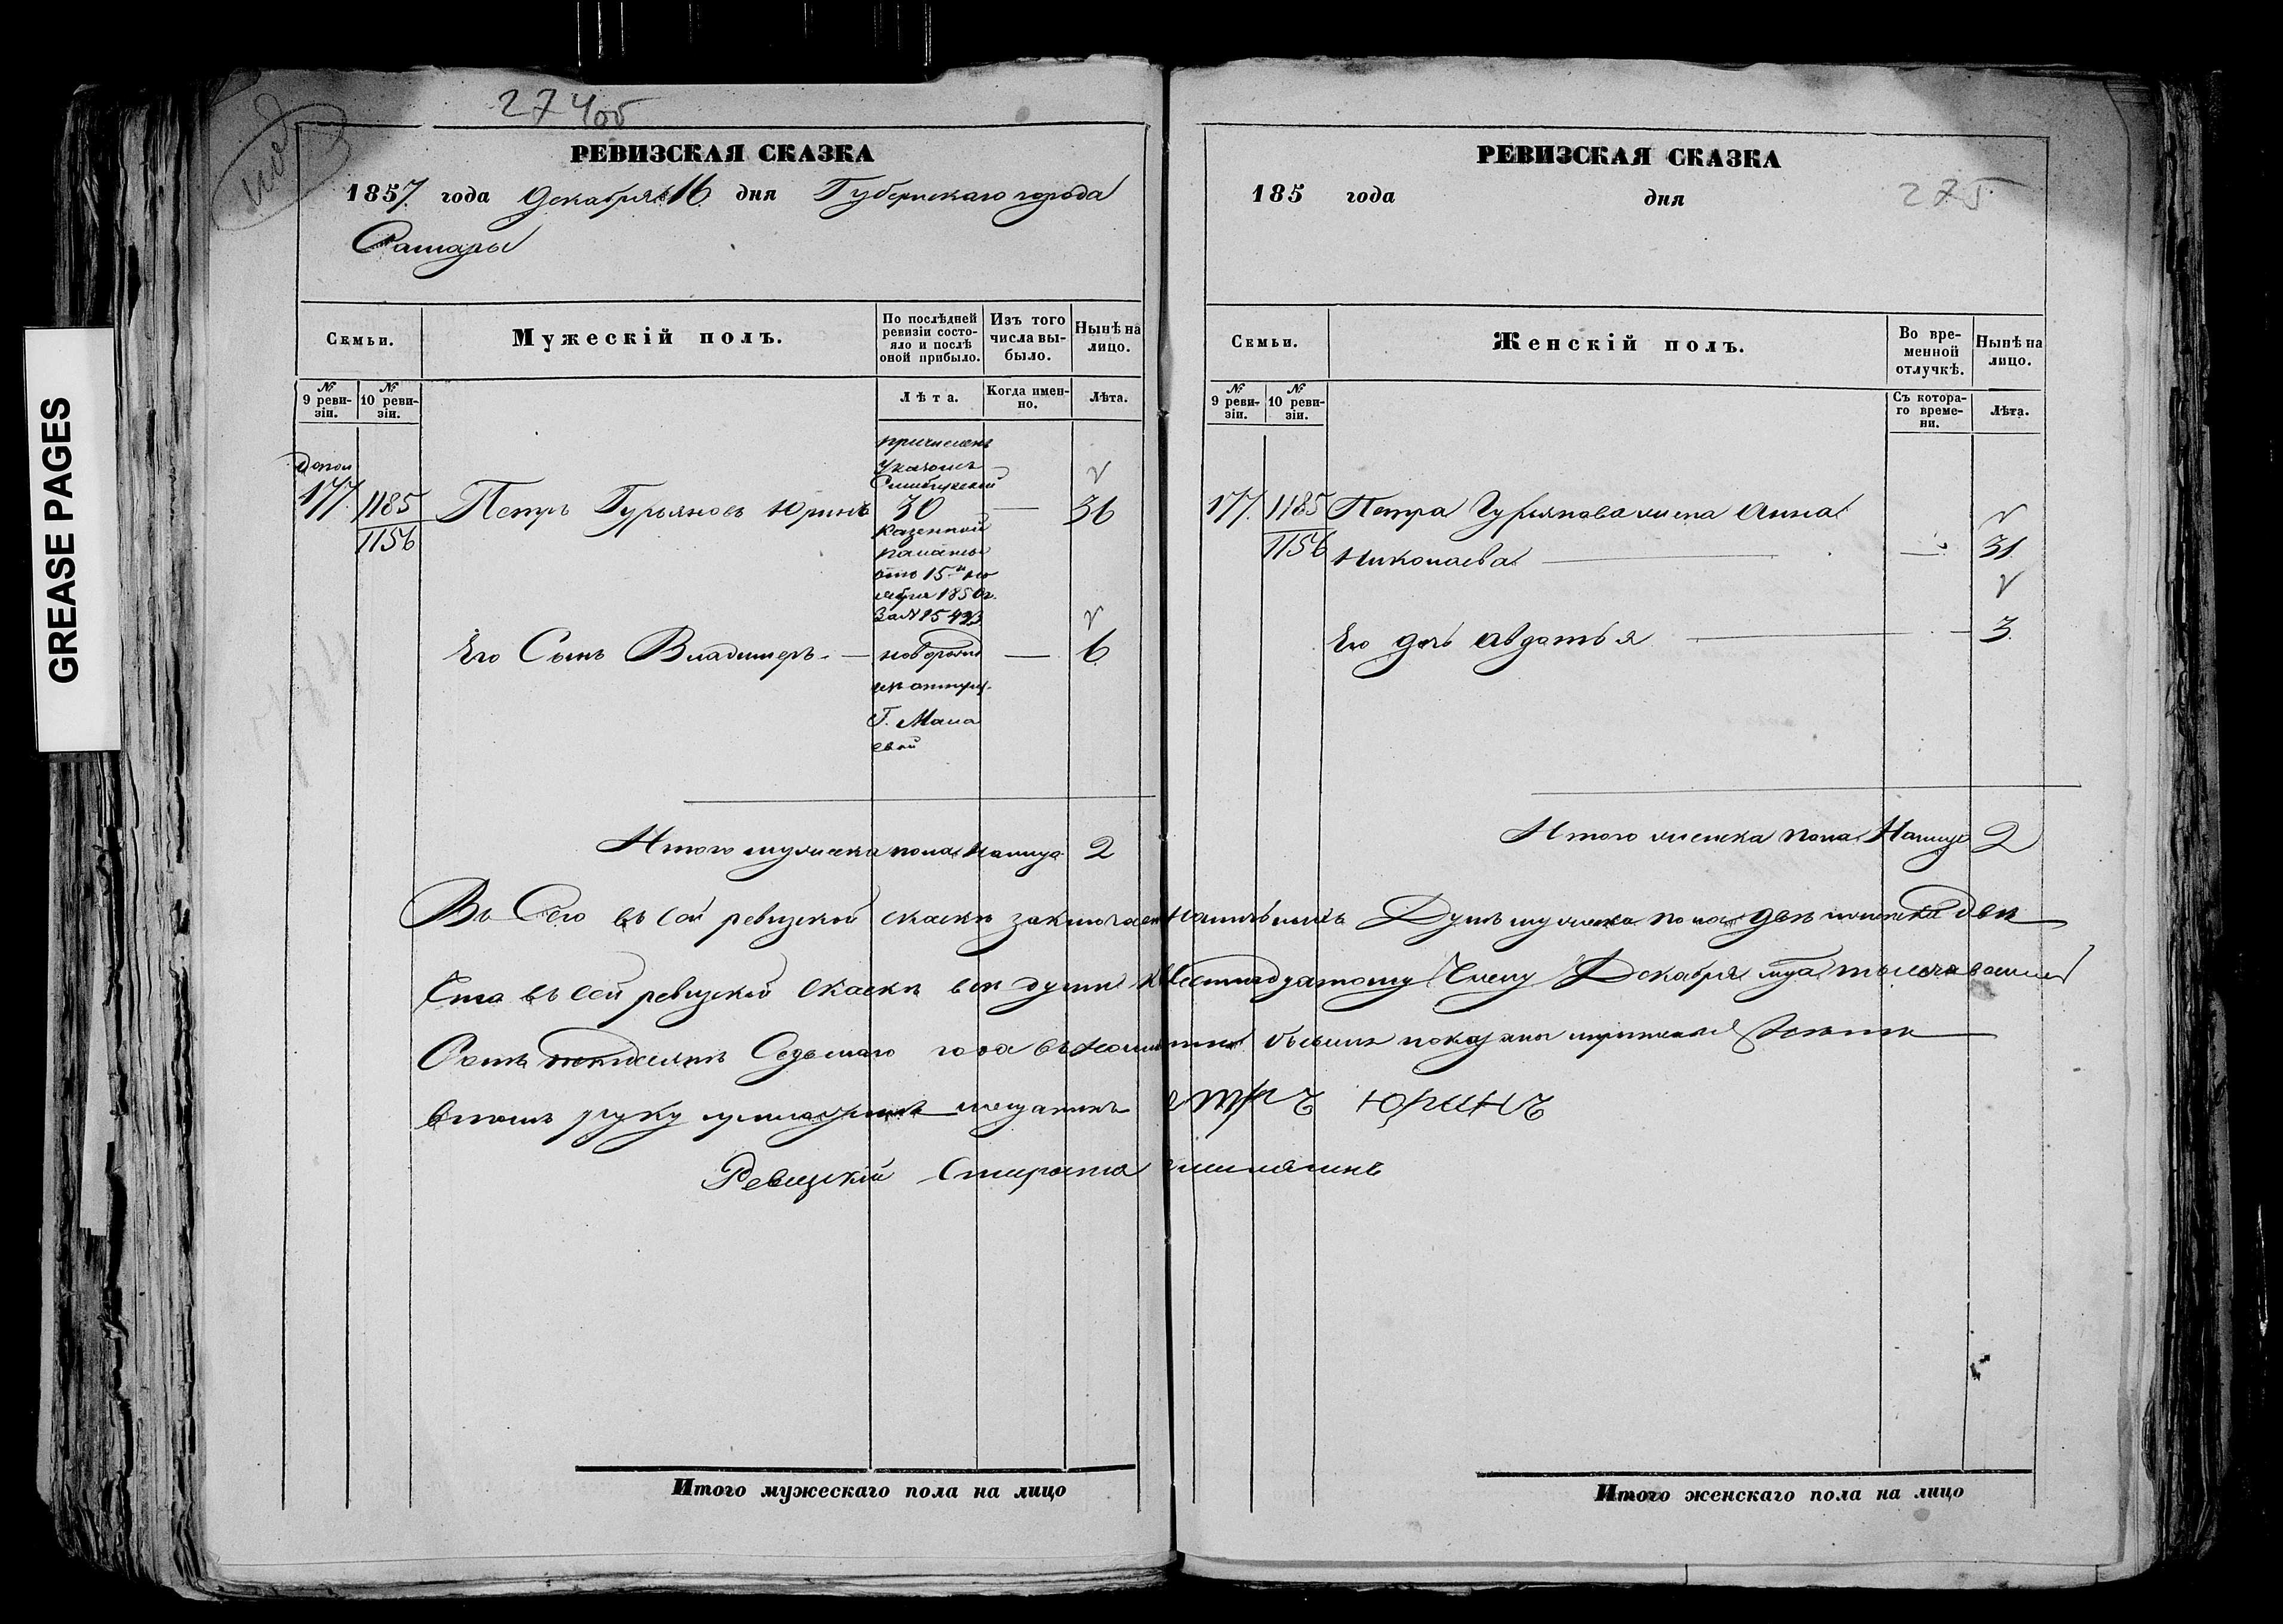 GREASE PAGES
274об
РЕВИЗСКАЯ СКАЗКА
1857 года Декабря 16 дня Губернскаго города
Самары
Семьи.
Мужескій полъ.
По послѣдней ревизіи состояло и послѣ оной прибыло.
Изъ того числа выбыло.
Нынѣ на лицо.
№ 9 ревизіи.
№ 10 ревизіи.
Лѣта.
Когда именно.
Лѣта.
причисленъ
Указомъ
Симбирской
допол
177 1185 Петръ Гурьяновъ Юринъ 30 — 36
1156
Казенной
палаты
отъ 15 но
ября 1850 г.
за № 15493
Его Сынъ Владимеръ — новорожд — 6
Итого мужеска пола налицо 2
РЕВИЗСКАЯ СКАЗКА
275
185 года дня
Семьи.
Женскій полъ.
Во временной отлучкѣ.
Нынѣ на лицо.
№ 9 ревизіи.
№ 10 ревизіи.
Съ котораго времени.
Лѣта.
177 1185 Петра Гурьянова жена Анна
1156 Николаева — 31
Его дочь Авдотья — 3
Итого женска пола Налицо 2
Въ Сего въ сей ревизской скаскѣ заключается наличныхъ Душъ мужеска пола двѣ женска двѣ
Что въ сей ревизской скаскѣ всѣ души къ шестнадцатому Числу Декабря мца тысяча восемь
Сотъ пятдесятъ Седьмаго года въ
въ томъ руку приложилъ мещанинъ Петръ Юринъ
Ревизскій Староста
Итого мужескаго пола на лицо
Итого женскаго пола на лицо